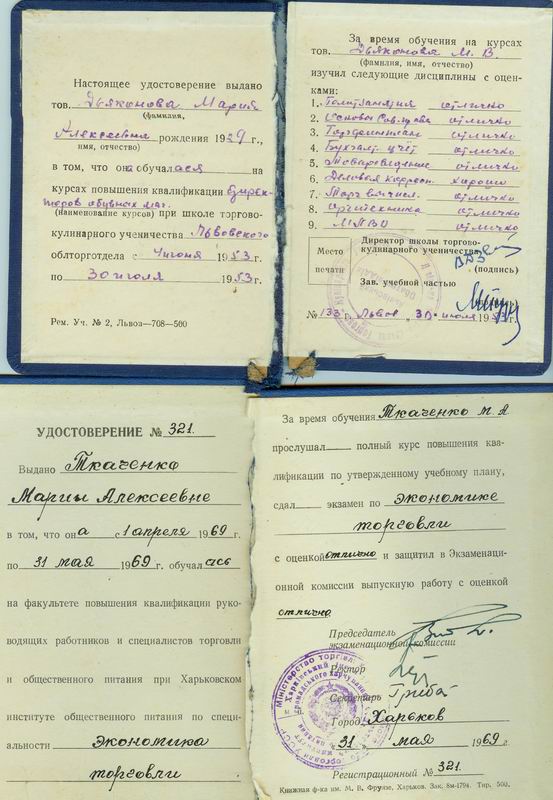 Настоящее удостоверение выдано
тов. Дьяконова Мария
(фамилия,
Алексеевна рождения 1929 г.,
имя, отчество)
в том, что она обучалася на
курсах повышения квалификации дирек-
торов обувных маг.
(наименование курсов) при школе торгово-
кулинарного ученичества Львовского
облторготдела с 4 июня 1953 г.
по 30 июля 1953 г.
Рем. Уч. № 2, Львов—708—500
За время обучения на курсах
тов. Дьяконова М. В.
(фамилия, имя, отчество)
изучил следующие дисциплины с оцен-
ками:
1. Политзанятия отлично
2. Основы Сов. права отлично
3. отлично
4. Бухгалт. учёт отлично
5. Товароведение отлично
6. Деловая корресп. хорошо
7. Торг. вычисл. отлично
8. Оргтехника отлично
9. МПВО отлично
Место
печати
Директор школы торгово-
кулинарного ученичества
(подпись)
Зав. учебной частью
№ 133 г. Львов „30“ июля 1953 г.
УДОСТОВЕРЕНИЕ № 321
Выдано Ткаченко
Марии Алексеевне
в том, что она с 1 апреля 1969 г.
по 31 мая 1969 г. обучалась
на факультете повышения квалификации руко-
водящих работников и специалистов торговли
и общественного питания при Харьковском
институте общественного питания по специ-
альности экономика
торговли
За время обучения Ткаченко М. А
прослушал полный курс повышения ква-
лификации по утвержденному учебному плану,
сдал экзамен по экономике
торговли
с оценкой отлично и защитил в Экзаменаци-
онной комиссии выпускную работу с оценкой
отлично
Председатель
экзаменационной комиссии
Ректор
Секретарь Гриба
Город Харьков
„31“ мая 1969 г.
Регистрационный № 321
Книжная ф-ка им. М. В. Фрунзе, Харьков. Зак. 8м-1794. Тир. 500.